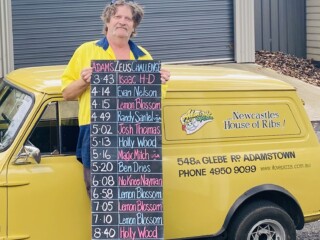 ADAMS ZEUS CHALLENGE
3-43 Isaac H-D
4-14 Evan Nelson
4-15 Lemon Blossom
4-49 Randy Santel
5-02 Josh Thomas
5-13 Holly Wood
5-16 Magic Mitch
5-20 Ben Dries
6-08 No Knees Nayman
6-58 Lemon Blossom
7-05 Lemon Blossom
7-10 Lemon Blossom
8-40 Holly Wood
Newcastles
House of Ribs!
548A GLEBE RD ADAMSTOWN
PHONE 4950 9099